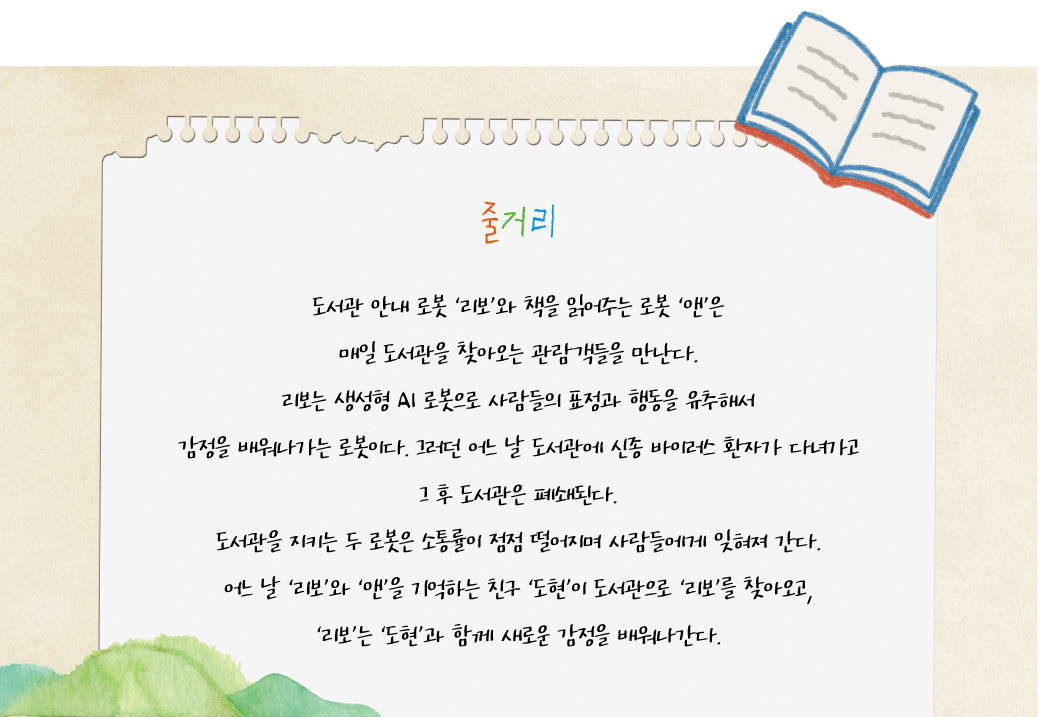 줄거리
도서관 안내 로봇 ‘리보’와 책을 읽어주는 로봇 ‘앤’은
매일 도서관을 찾아오는 관람객들을 만난다.
리보는 생성형 AI 로봇으로 사람들의 표정과 행동을 유추해서
감정을 배워나가는 로봇이다. 그러던 어느 날 도서관에 신종 바이러스 환자가 다녀가고
그 후 도서관은 폐쇄된다.
도서관을 지키는 두 로봇은 소통률이 점점 떨어지며 사람들에게 잊혀져 간다.
어느 날 ‘리보’와 ‘앤’을 기억하는 친구 ‘도현’이 도서관으로 ‘리보’를 찾아오고,
‘리보’는 ‘도현’과 함께 새로운 감정을 배워나간다.